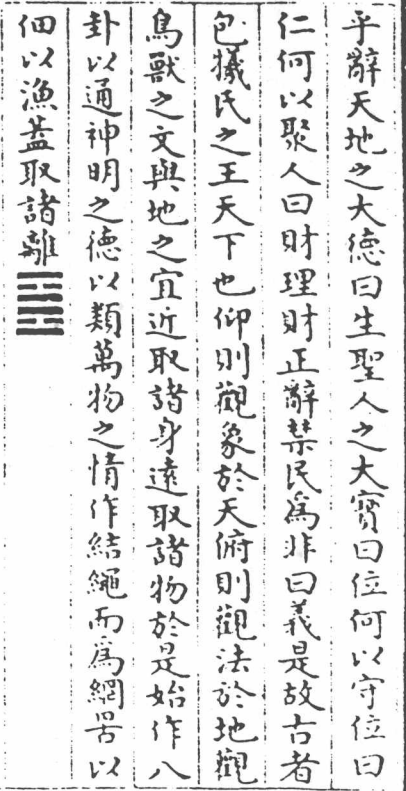 乎辭天地之大德曰生聖人之大寶曰位何以守位曰
仁何以聚人曰財理財正辭禁民爲非曰義是故古者
包犧氏之王天下也仰則觀象於天俯則觀法於地觀
鳥獸之文與地之宜近取諸身遠取諸物於是始作八
卦以通神明之德以類萬物之情作結繩而爲網罟以
佃以漁蓋取諸離䷝